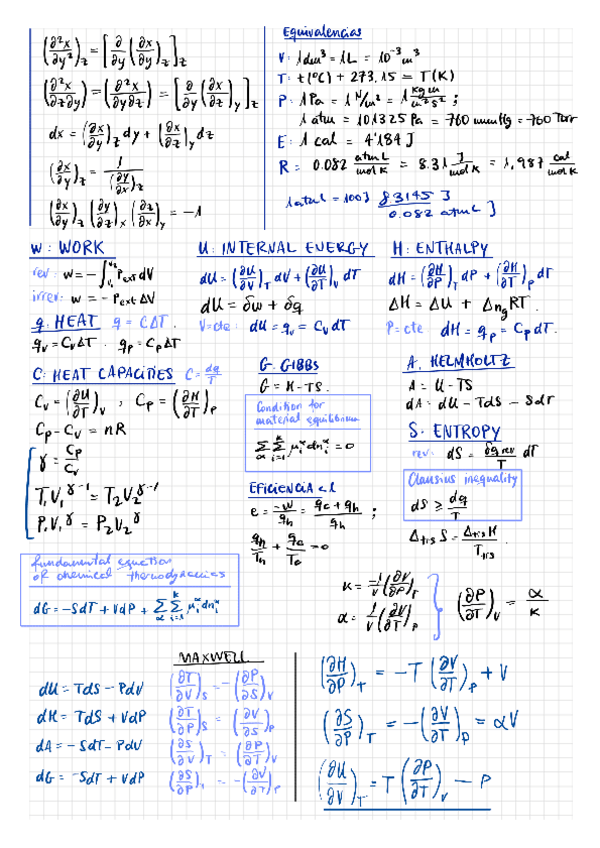 (∂²x/∂y²)_z = [∂/∂y (∂x/∂y)_z]_z
(∂²x/∂z∂y) = (∂²x/∂y∂z) = [∂/∂z (∂x/∂y)_z]_y
dx = (∂x/∂y)_z dy + (∂x/∂z)_y dz
(∂x/∂y)_z = 1/(∂y/∂x)_z
(∂x/∂y)_z (∂y/∂z)_x (∂z/∂x)_y = -1
Equivalencias
V: 1dm³ = 1L = 10⁻³ m³
T: t(ºC) + 273,15 = T(K)
P: 1Pa = 1 N/m² = 1 kg m/m² s² ;
1 atm = 101325 Pa = 760 mmHg = 760 Torr
E: 1 cal = 4'184 J
R = 0.082 atm L/mol K = 8.31 J/mol K = 1,987 cal/mol K
1 atm L = 100 J 8.3145 J / 0.082 atm L
W: WORK
rev: w = -∫_V₁^V₂ P_ext dV
irrev: w = - P_ext ΔV
q. HEAT q = CΔT.
q_v = C_vΔT . q_p = C_pΔT
U: INTERNAL ENERGY
dU = (∂U/∂V)_T dV + (∂U/∂T)_V dT
dU = δw + δq
V=cte: dU = q_v = C_v dT
H: ENTHALPY
dH = (∂H/∂P)_T dP + (∂H/∂T)_P dT
ΔH = ΔU + Δn_g RT.
P=cte dH = q_p = C_p dT.
C: HEAT CAPACITIES C = dq/T
C_v = (∂U/∂T)_V , C_p = (∂H/∂T)_P
C_p - C_v = nR
γ = C_p/C_v
T₁V₁^γ-1 = T₂V₂^γ-1
P₁V₁^γ = P₂V₂^γ
G. GIBBS
G = H - TS.
Condition for
material equilibrium
Σ_α Σ_i=1^k μ_i^α dn_i^α = 0
A. HELMHOLTZ
A = U - TS
dA = dU - TdS - SdT
S. ENTROPY
rev: dS = δq_rev/T dT
Clausius inequality
dS ≥ dq/T
Δ_trs S = Δ_trs H/T_trs .
EFICIENCIA < 1
e = -w/q_h = q_c + q_h/q_h ;
q_h/T_h + q_c/T_c = 0
fundamental equation
of chemical thermodynamics
dG = -SdT + VdP + Σ_α Σ_i=1^k μ_i^α dn_i^α
κ = -1/V (∂V/∂P)_T
α = 1/V (∂V/∂T)_P
(∂P/∂T)_V = α/κ
MAXWELL
dU = TdS - PdV (∂T/∂V)_S = -(∂P/∂S)_V
dH = TdS + VdP (∂T/∂P)_S = (∂V/∂S)_P
dA = -SdT - PdV (∂S/∂V)_T = (∂P/∂T)_V
dG = -SdT + VdP (∂S/∂P)_T = -(∂V/∂T)_P
(∂H/∂P)_T = -T (∂V/∂T)_P + V
(∂S/∂P)_T = -(∂V/∂T)_P = αV
(∂U/∂V)_T = T (∂P/∂T)_V - P